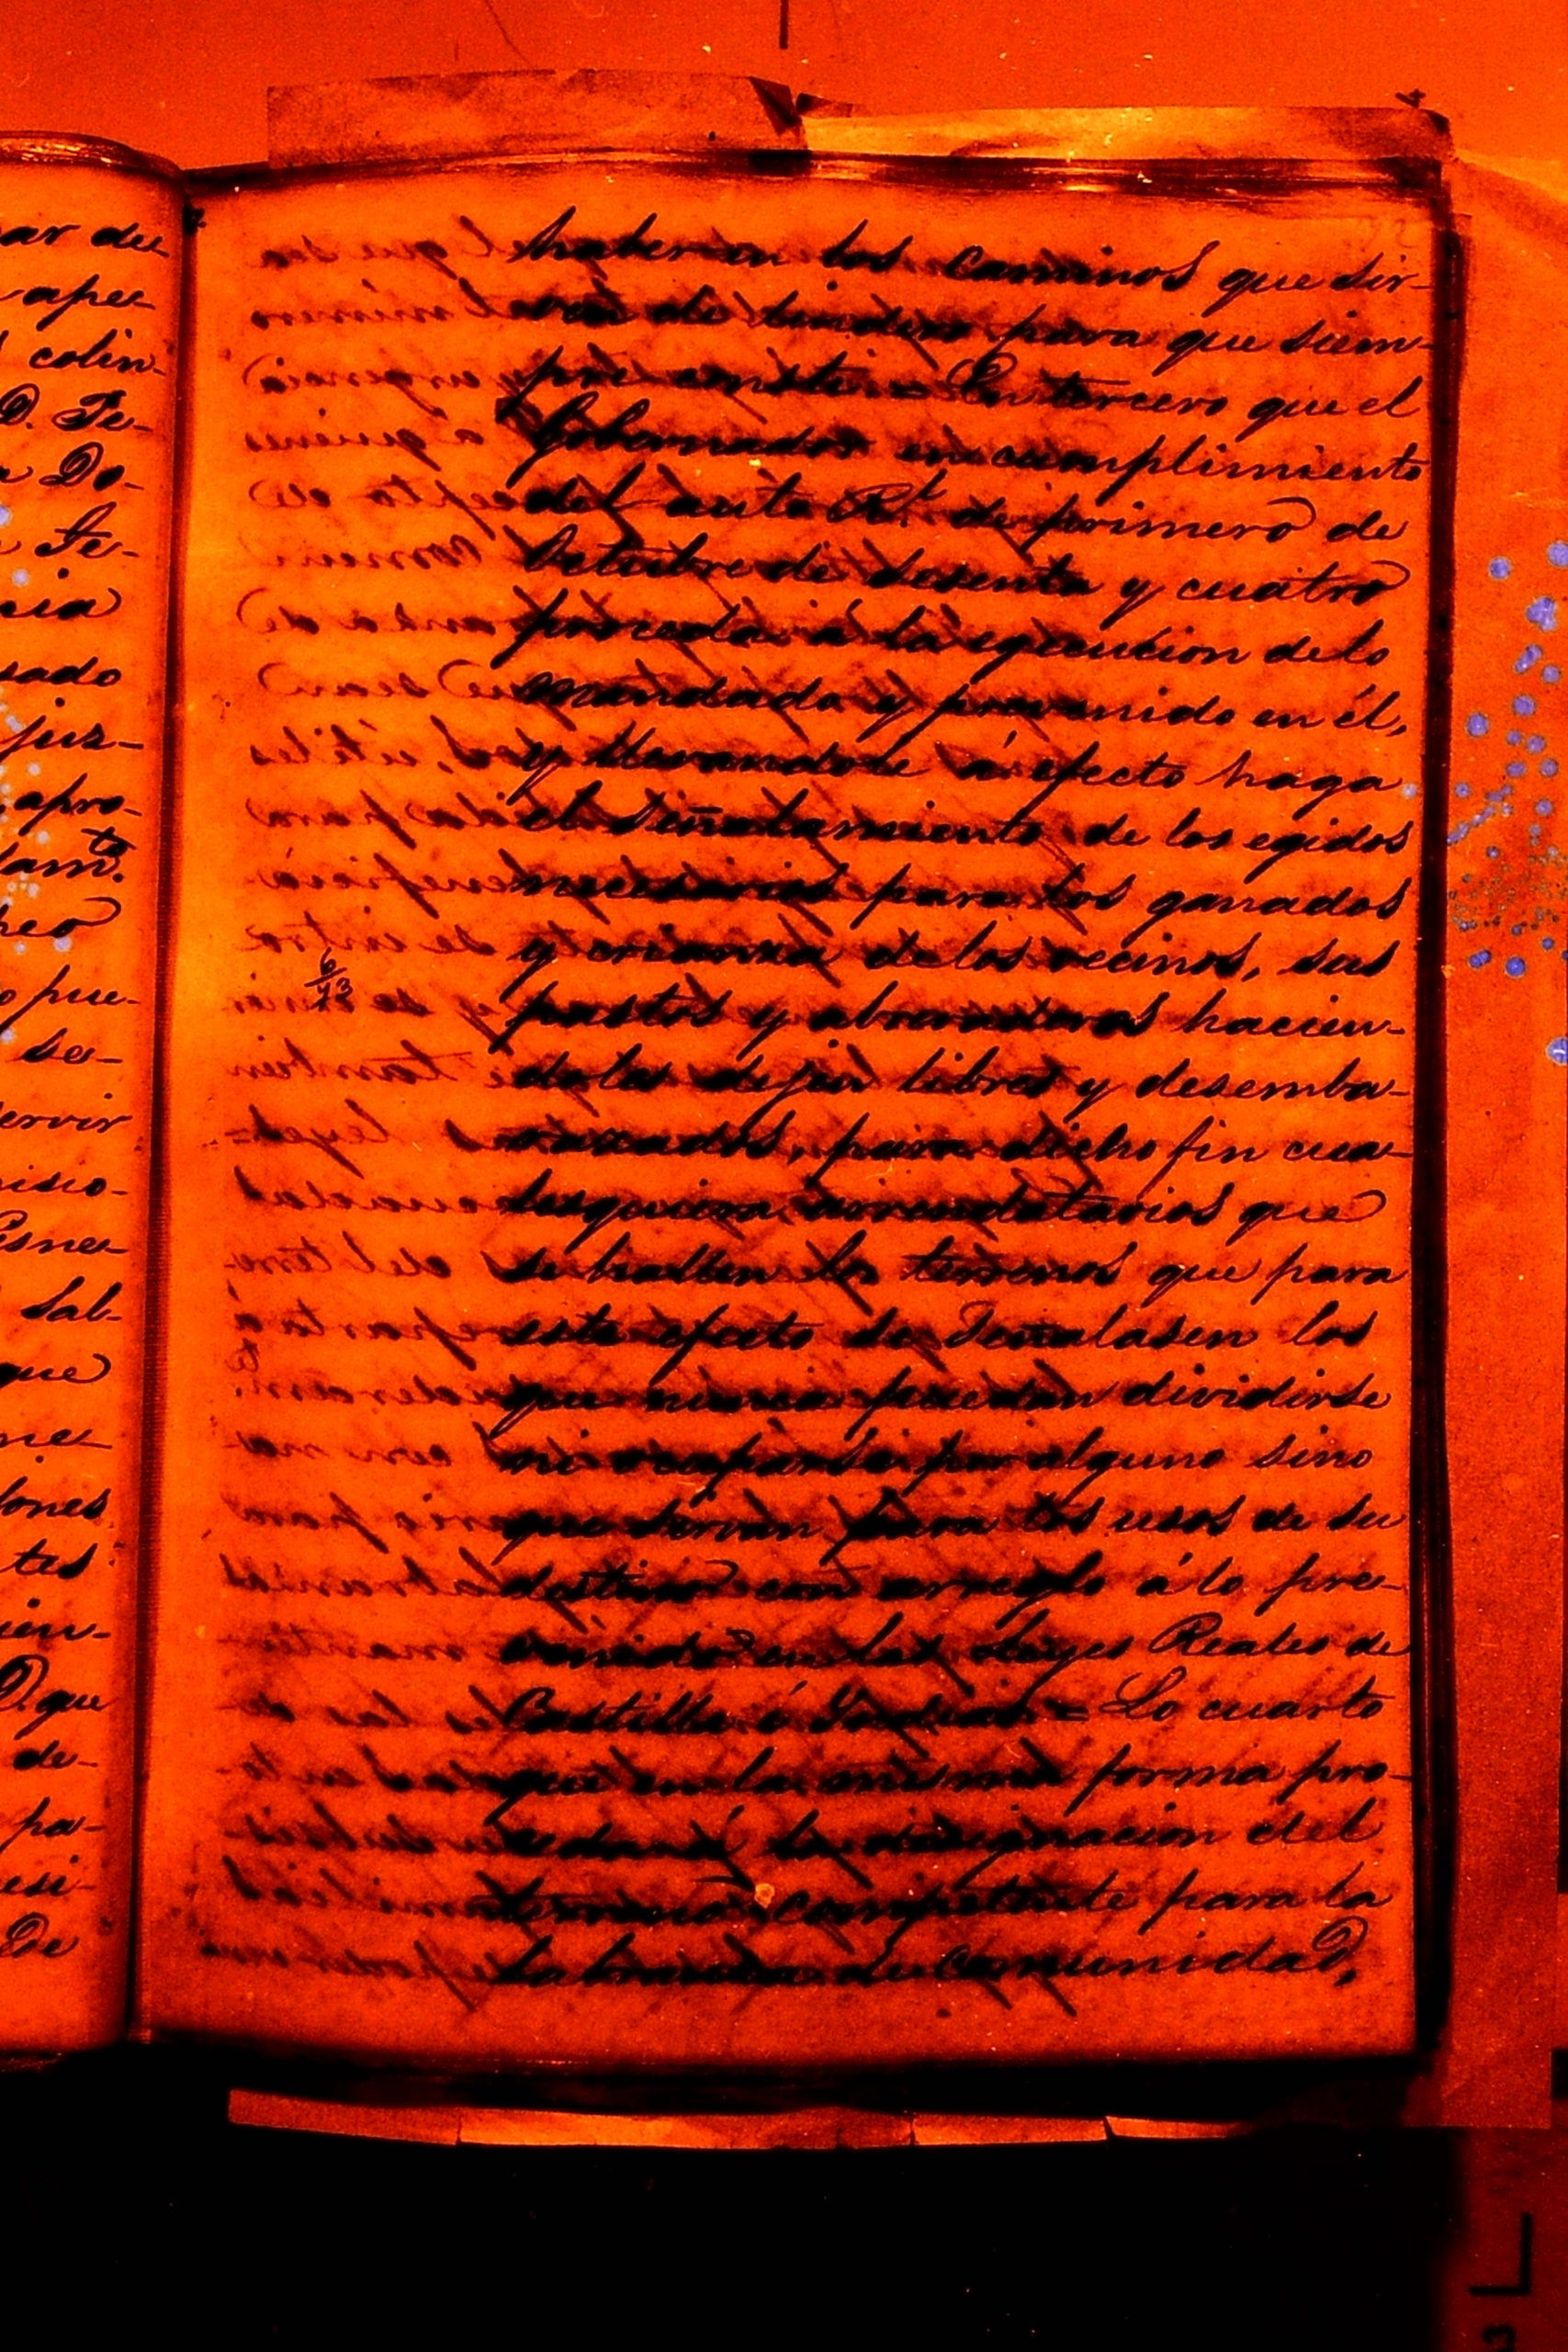 ar de
apee-
colin-
D. Fe-
a Do-
Fe-
cia
sado
jus-
apro-
dam.to
heo
o pue-
se-
ervir
isio-
Esne-
Sab-
que
ne-
lones
tes
ien-
D. que
de-
pa-
esi-
De
haber en los caminos que sir-
ven de lindero para que siem-
pre conste = En tercero que el
Gobernador en cumplimiento
del auto R.l de primero de
Octubre de sesenta y cuatro
proceda á la egecucion de lo
mandado y prevenido en él,
y llevandole á efecto haga
el señalamiento de los egidos
necesarios para los ganados
y crianza de los vecinos, sus
pastos y abrevaderos hacien-
doles dejen libres y desemba-
razados, para dicho fin cua-
lesquiera arrendatarios que
se hallen los terrenos que para
este efecto se señalasen los
que nunca puedan dividirse
ni ocuparse por alguno sino
que sirvan para los usos de su
destino con arreglo á lo pre-
venido en las Leyes Reales de
Castilla é Indias = Lo cuarto
que en la misma forma pro-
cedará la designacion del
terreno competente para la
labranza de comunidad,
6
23